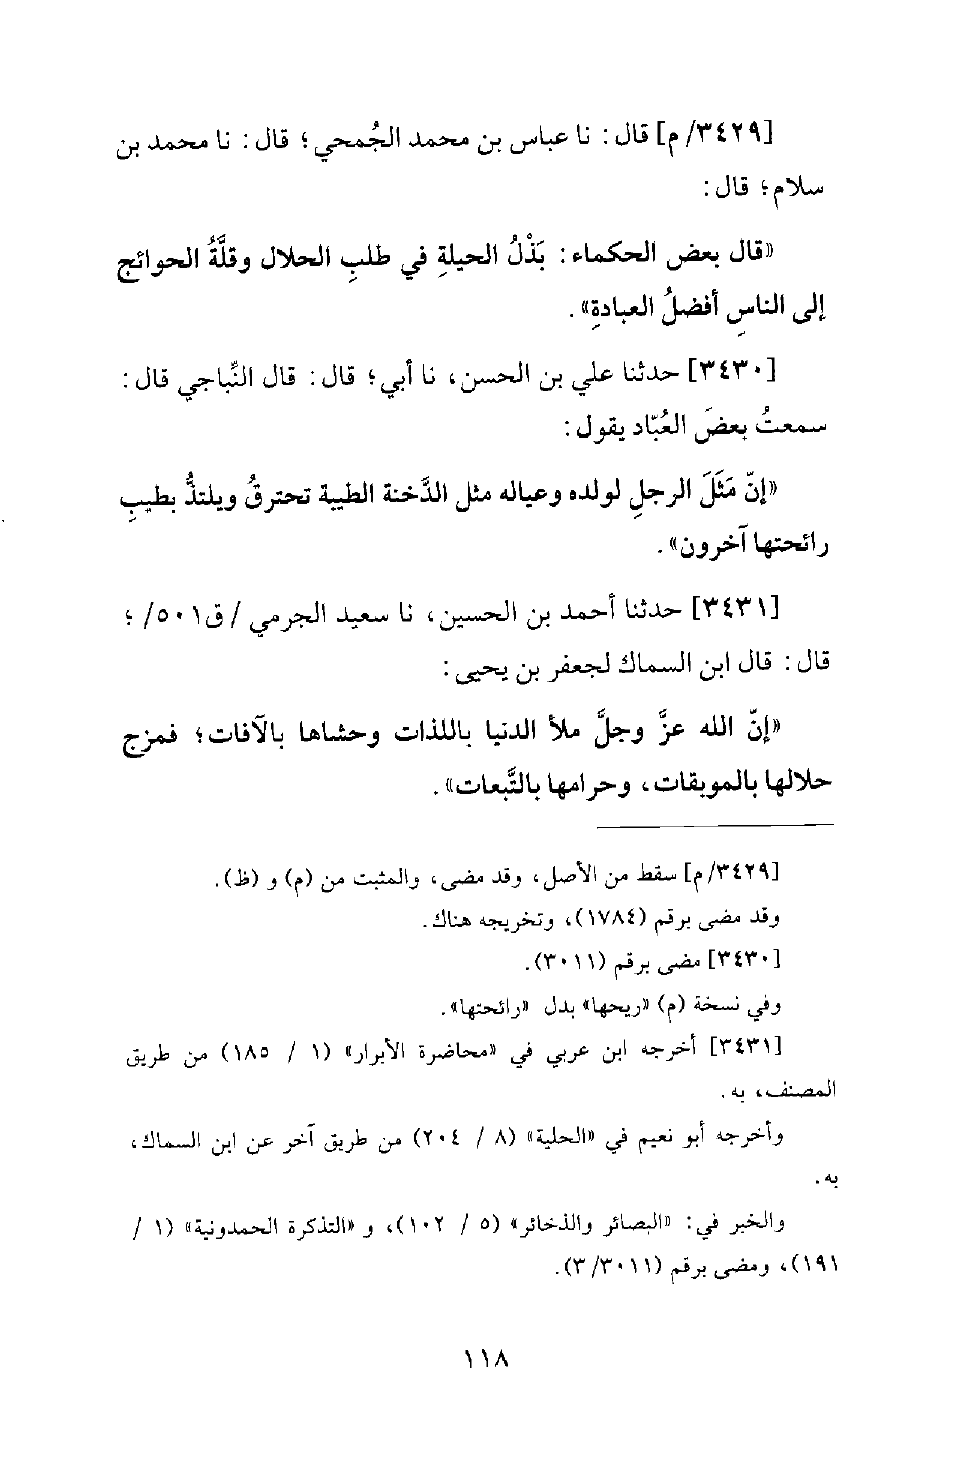 [٣٤٢٩/ م] قال : نا عباس بن محمد الجُمحي ؛ قال : نا محمد بن
سلام ؛ قال :
«قال بعض الحكماء : بَذْلُ الحيلةِ في طلبِ الحلال وقلَّةُ الحوائج
إلى الناسِ أفضلُ العبادةِ» .
[٣٤٣٠] حدثنا علي بن الحسن، نا أبي؛ قال : قال النِّباجي قال :
سمعتُ بعضَ العُبّاد يقول :
«إنّ مَثَلَ الرجلِ لولده وعياله مثل الدَّخنة الطيبة تحترقُ ويلتذُّ بطيبِ
رائحتها آخرون» .
[٣٤٣١] حدثنا أحمد بن الحسين، نا سعيد الجرمي / ق٥٠١/ ؛
قال : قال ابن السماك لجعفر بن يحيى :
«إنّ الله عزَّ وجلَّ ملأ الدنيا باللذات وحشاها بالآفات؛ فمزج
حلالها بالموبقات، وحرامها بالتَّبعات» .
[٣٤٢٩/ م] سقط من الأصل، وقد مضى، والمثبت من (م) و (ظ).
وقد مضى برقم (١٧٨٤)، وتخريجه هناك.
[٣٤٣٠] مضى برقم (٣٠١١).
وفي نسخة (م) «ريحها» بدل «رائحتها».
[٣٤٣١] أخرجه ابن عربي في «محاضرة الأبرار» (١ / ١٨٥) من طريق
المصنف، به.
وأخرجه أبو نعيم في «الحلية» (٨ / ٢٠٤) من طريق آخر عن ابن السماك،
به.
والخبر في: «البصائر والذخائر» (٥ / ١٠٢)، و «التذكرة الحمدونية» (١ /
١٩١)، ومضى برقم (٣/٣٠١١).
١١٨